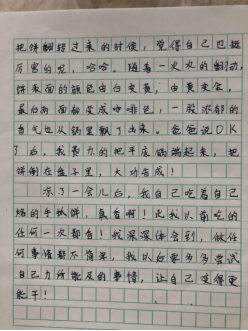 把饼翻转过来的时候，觉得自己也挺
厉害的呢，哈哈。随着一次次的翻动，
饼表面的颜色由白变黄，由黄变金，
最后两面都变成咖啡色，一股浓郁的
香气也从锅里飘了出来。爸爸说OK
了后，我费力的把平底锅端起来，把
饼倒在盘子里，大功告成！
凉了一会儿后，我自己吃着自己
烙的手抓饼，真香啊！比我以前吃的
任何一次都香！我深深体会到，做任
何事情都不简单，我以后要多多尝试
自己力所能及的事情，让自己变得更
能干！